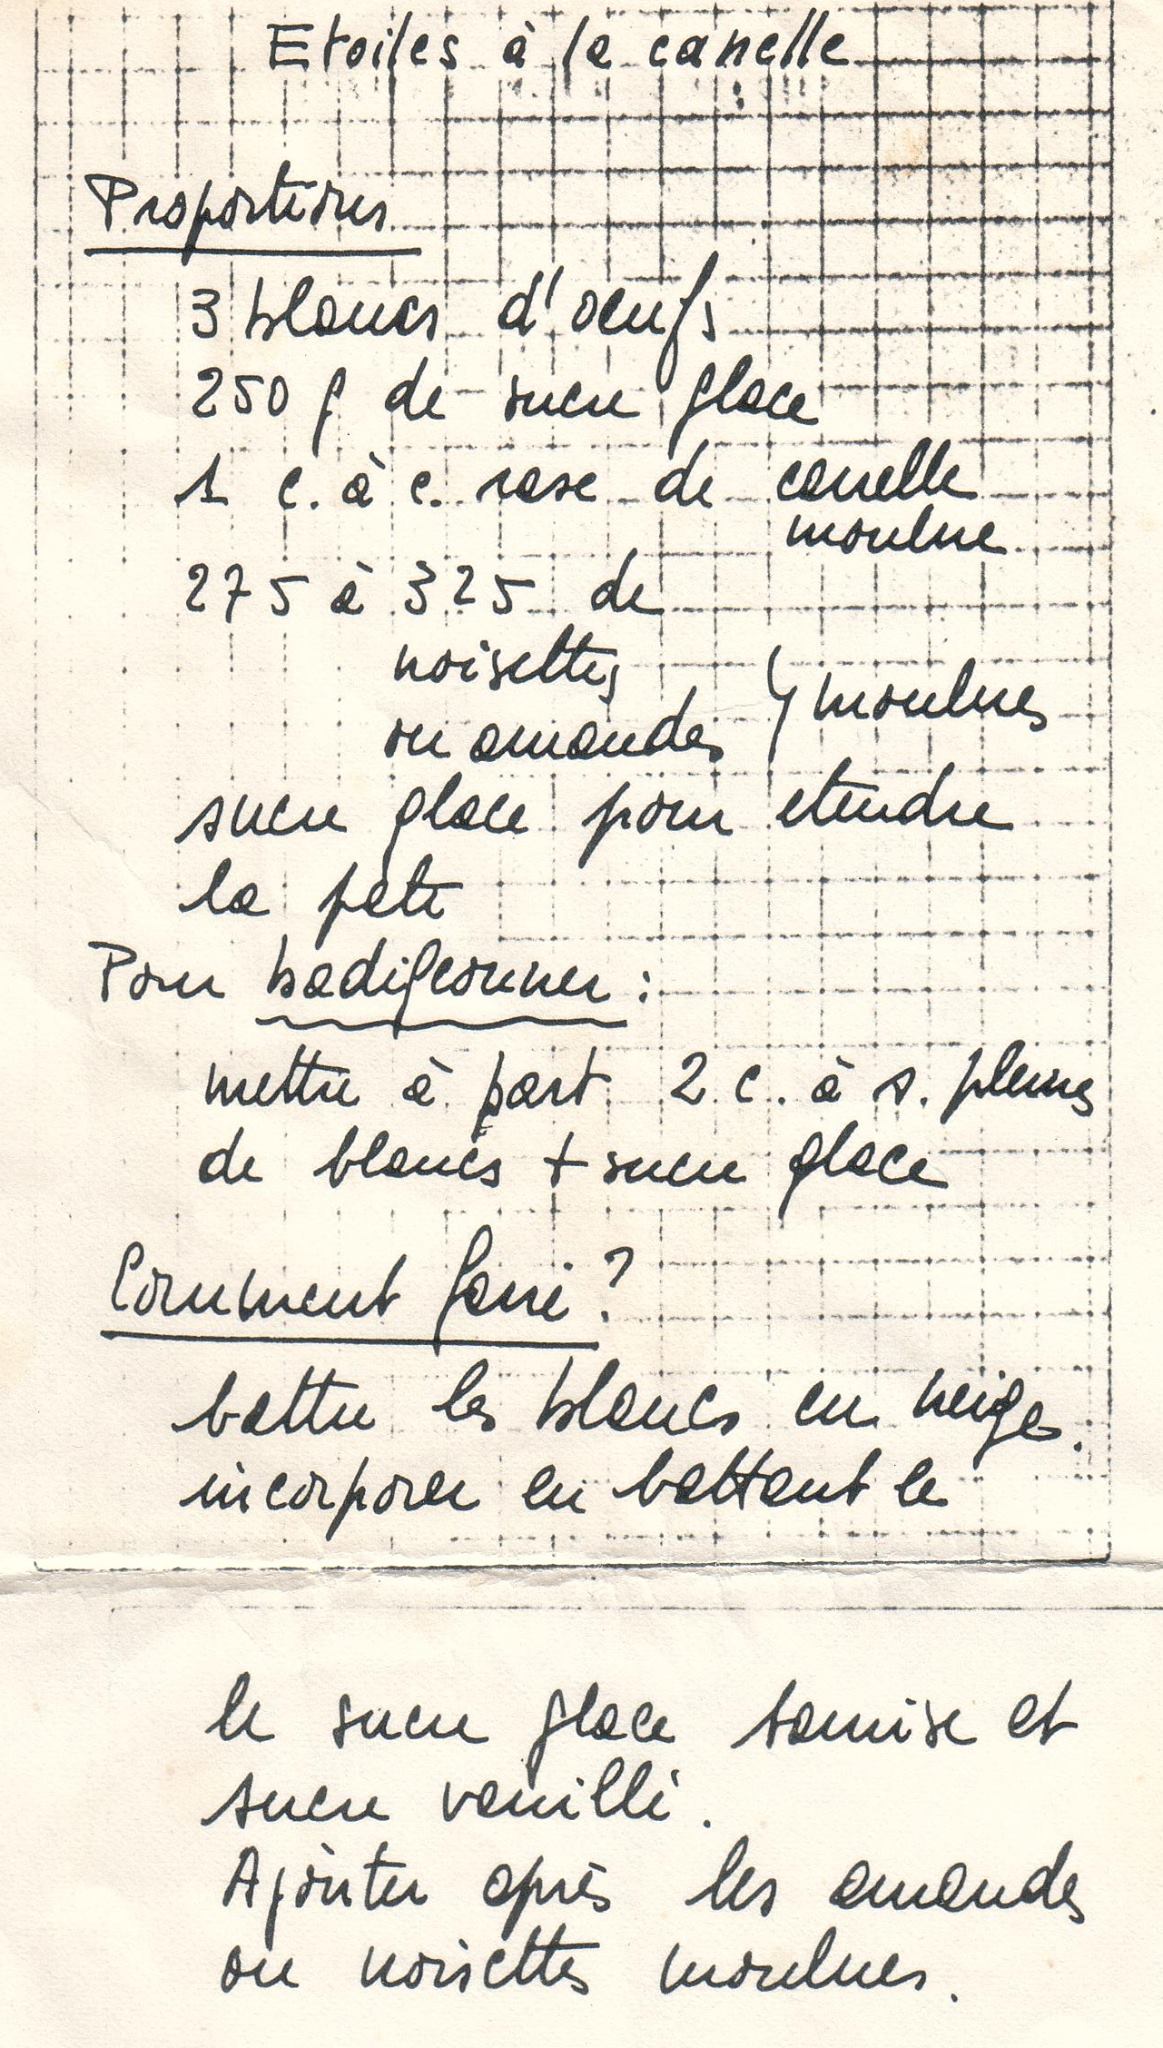 Etoiles à la canelle
Proportions
3 blancs d'oeufs
250 g de sucre glace
1 c. à c. rase de canelle
moulue
275 à 325 de
noisettes
ou amandes } moulues
sucre glace pour etendre
la pate
Pour badigeonner :
mettre à part 2 c. à s. pleines
de blancs + sucre glace
Comment faire ?
battre les blancs en neige.
incorporer en battant le
le sucre glace tamise et
sucre vanillé.
Ajouter après les amandes
ou noisettes moulues.